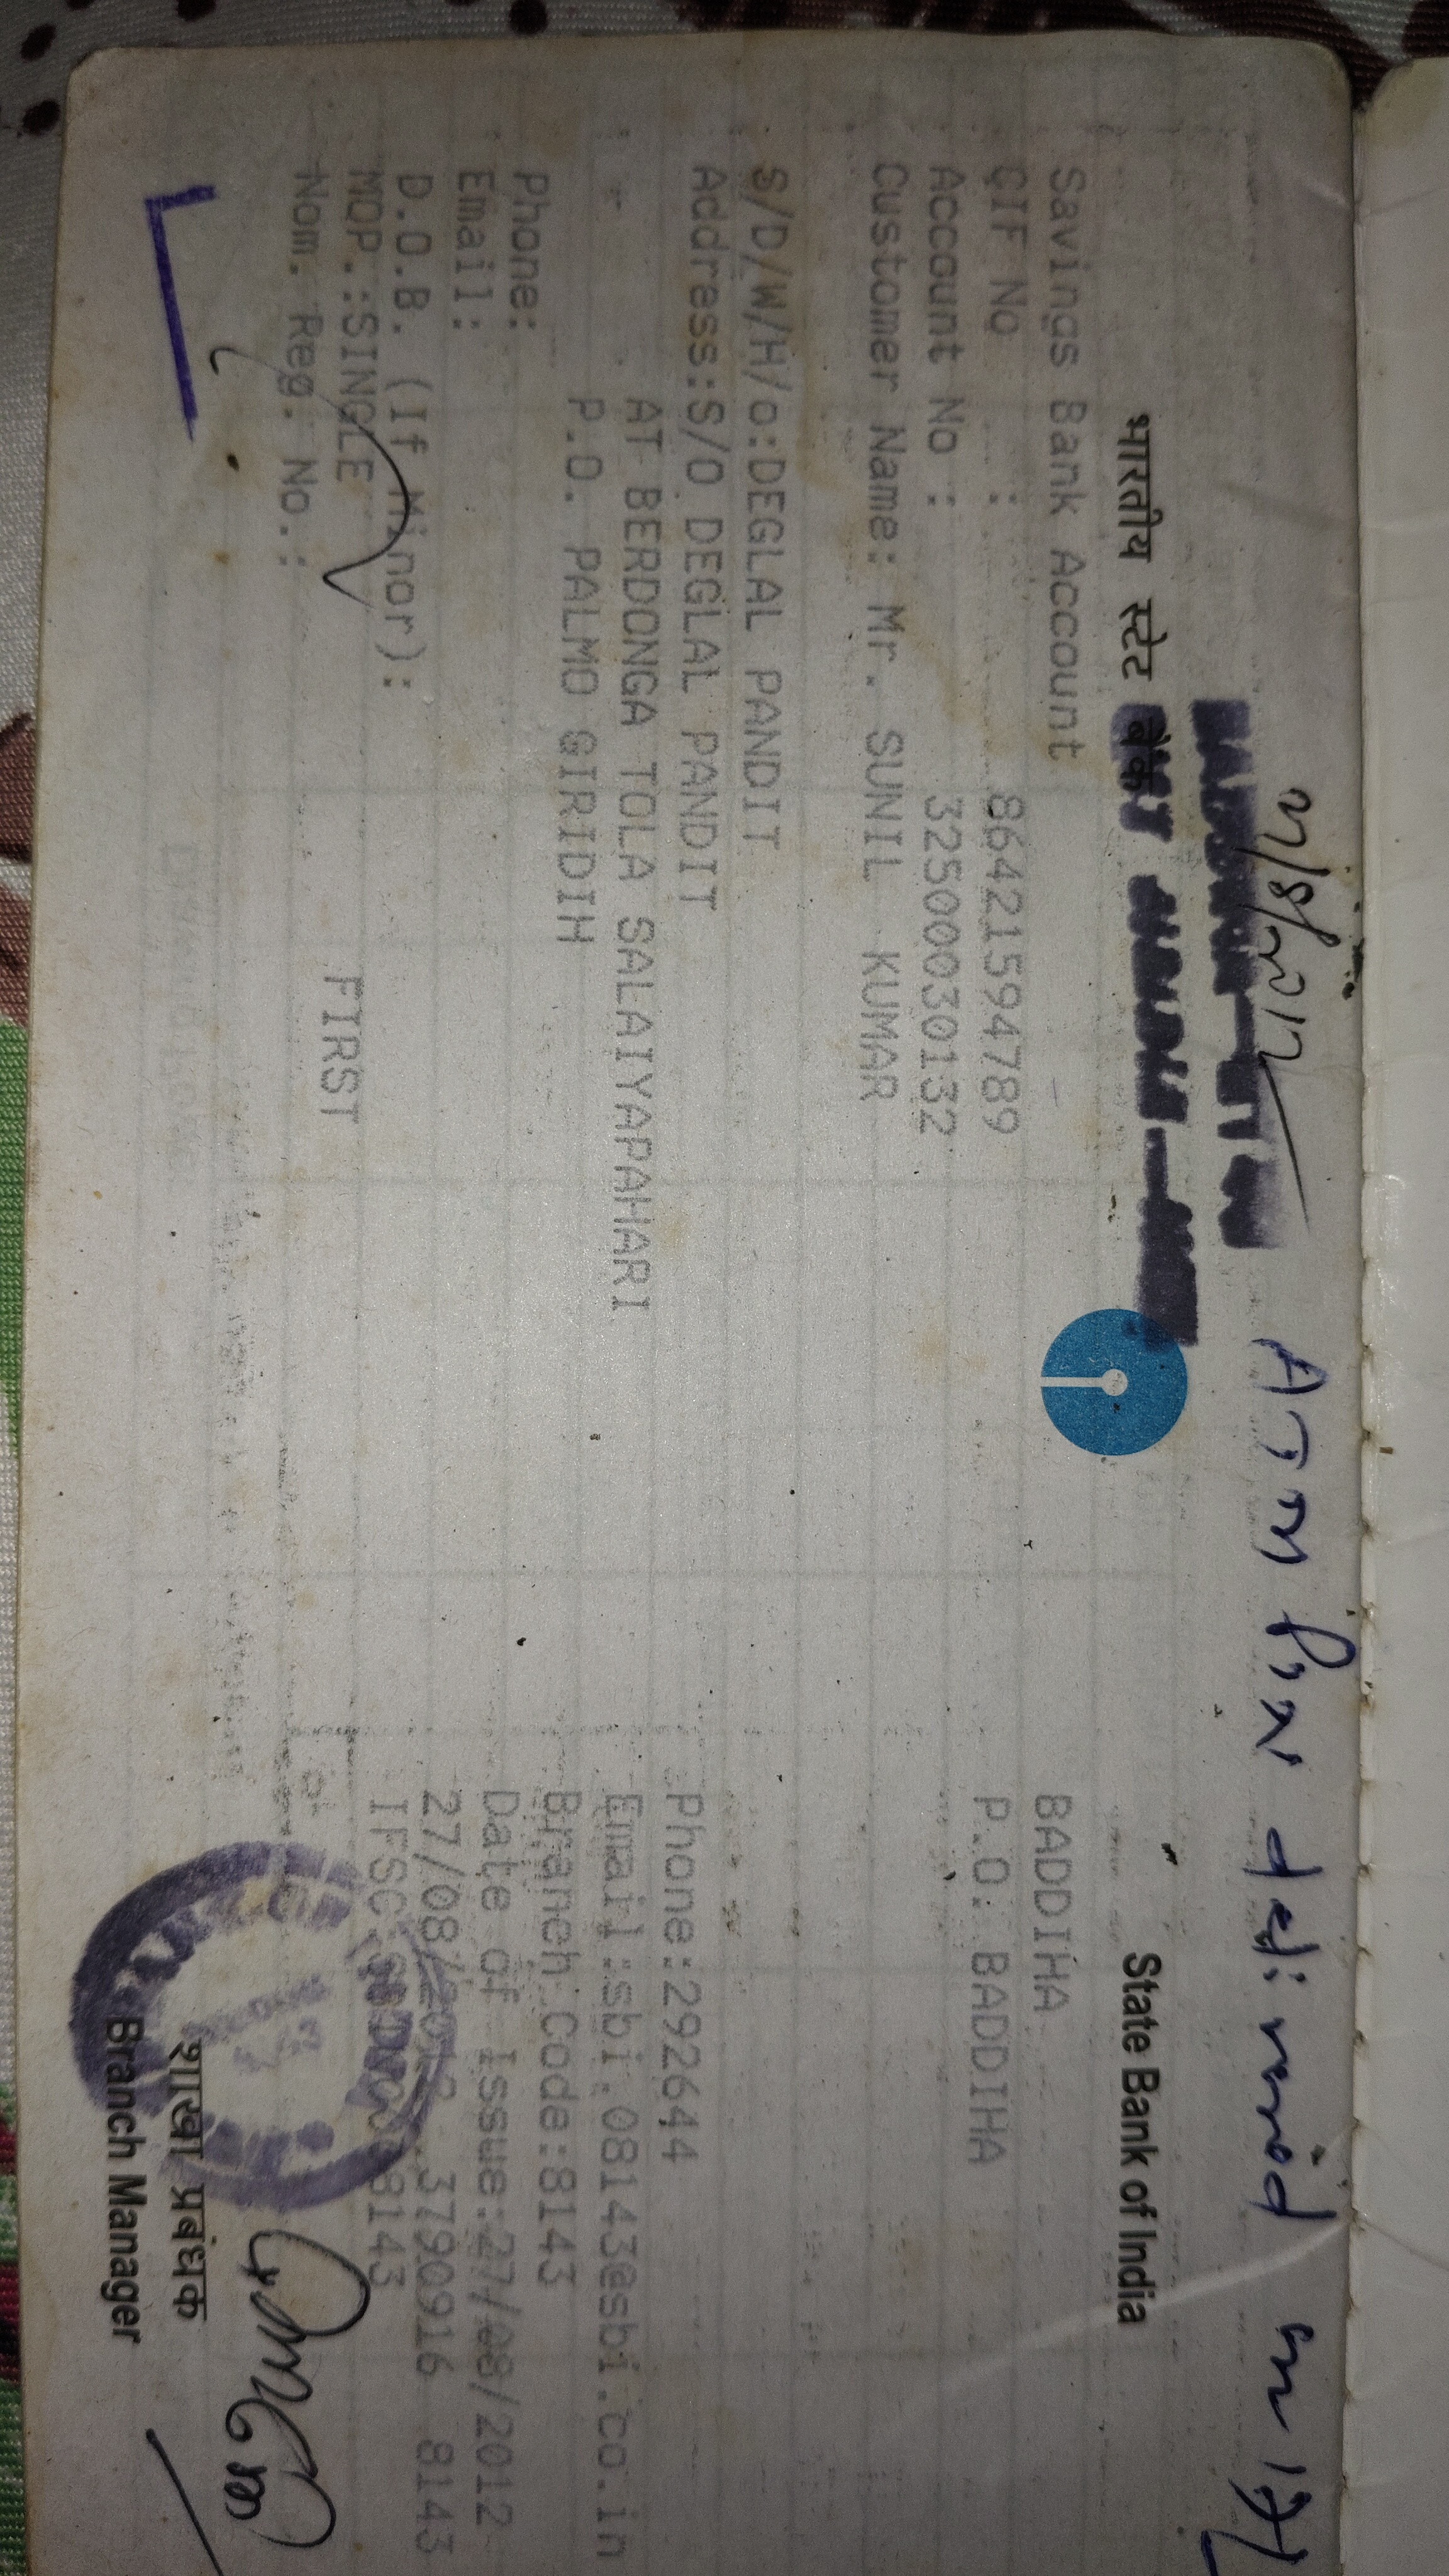 27/8/2012
भारतीय स्टेट बैंक
State Bank of India
Savings Bank Account
CIF No : 86421594789
Account No : 32500030132
Customer Name: Mr. SUNIL KUMAR
S/D/W/H/o:DEGLAL PANDIT
Address:S/O DEGLAL PANDIT
AT BERDONGA TOLA SALAIYAPAHARI
P.O. PALMO GIRIDIH
Phone:
Email:
D.O.B. (If Minor):
MOP.:SINGLE FIRST
Nom. Reg. No.:
BADDIHA
P.O. BADDIHA
Phone:292644
Email:sbi.08143@sbi.co.in
Branch Code:8143
Date of Issue:27/08/2012
27/08/2012 3790916 8143
शाखा प्रबंधक
Branch Manager